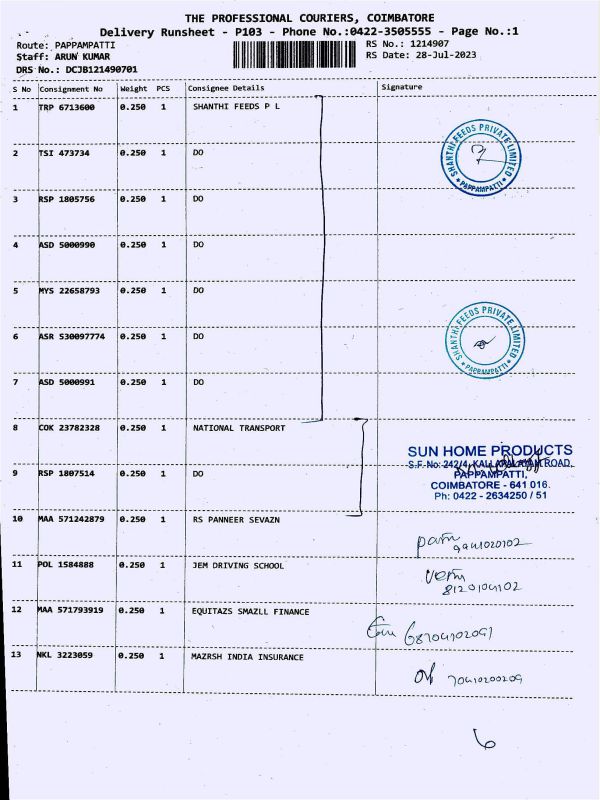 THE PROFESSIONAL COURIERS, COIMBATORE
Delivery Runsheet - P103 - Phone No.:0422-3505555 - Page No.:1
Route: PAPPAMPATTI RS No.: 1214907
Staff: ARUN KUMAR RS Date: 28-Jul-2023
DRS No.: DCJB121490701
S No Consignment No Weight PCS Consignee Details Signature
1 TRP 6713600 0.250 1 SHANTHI FEEDS P L
SHANTHI FEEDS PRIVATE LIMITED
7
* PAPPAMPATTI *
2 TSI 473734 0.250 1 DO
3 RSP 1805756 0.250 1 DO
4 ASD 5000990 0.250 1 DO
5 MYS 22658793 0.250 1 DO
SHANTHI FEEDS PRIVATE LIMITED
* PAPPAMPATTI *
6 ASR 530097774 0.250 1 DO
7 ASD 5000991 0.250 1 DO
8 COK 23782328 0.250 1 NATIONAL TRANSPORT
SUN HOME PRODUCTS
S.F. No: 242/4, KALLAPALAYAM ROAD,
PAPPAMPATTI,
COIMBATORE - 641 016.
Ph: 0422 - 2634250 / 51
9 RSP 1807514 0.250 1 DO
10 MAA 571242879 0.250 1 RS PANNEER SEVAZN
11 POL 1584888 0.250 1 JEM DRIVING SCHOOL
12 MAA 571793919 0.250 1 EQUITAZS SMAZLL FINANCE
13 NKL 3223059 0.250 1 MAZRSH INDIA INSURANCE
6